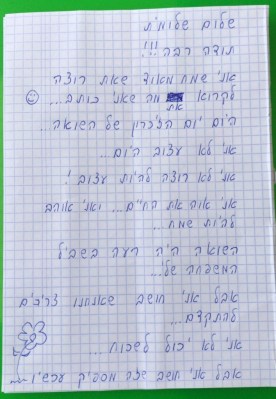 שלום שלומית
תודה רבה!!!
אני שמח מאוד שאת רוצה
לקרוא את מה שאני כותב...
היום יום הזכרון של השואה...
אני לא עצוב היום...
אני לא רוצה להיות עצוב!
אני אוהב את החיים... ואני אוהב
להיות שמח...
השואה היה רעה בשביל
המשפחה שלי...
אבל אני חושב שאנחנו צריכים
להתקדם...
אני לא יכול לשכוח...
אבל אני חושב שזה מספיק עכשיו